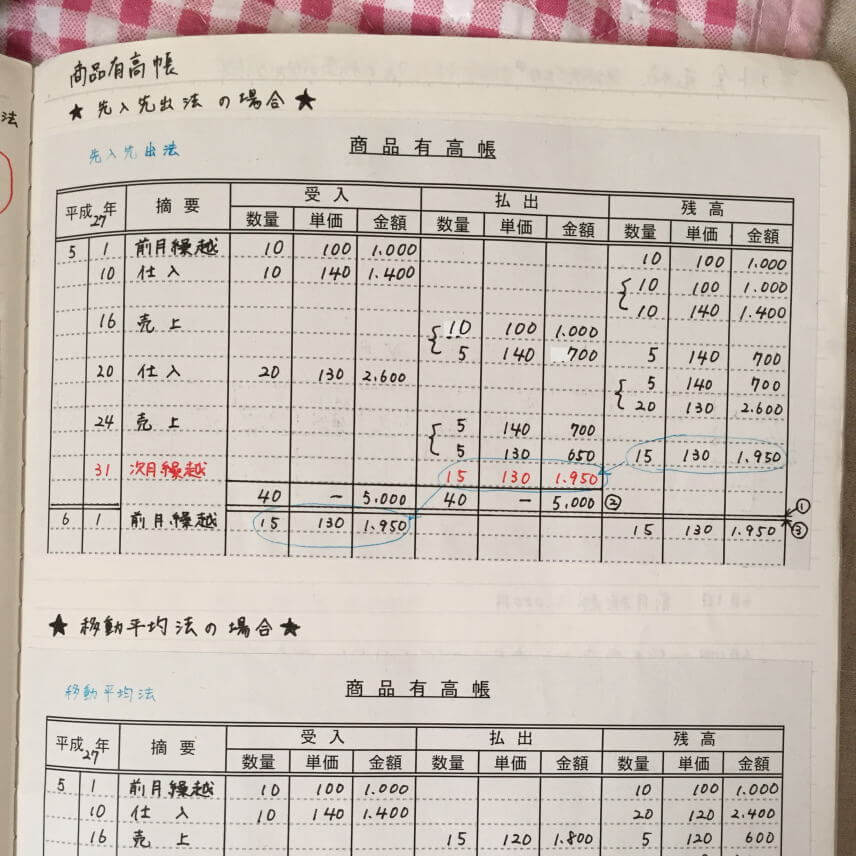 法
商品有高帳
★ 先入先出法 の 場合 ★
先入先出法
商品有高帳
平成 27 年 摘要 受入 払出 残高
数量 単価 金額 数量 単価 金額 数量 単価 金額
5 1 前月繰越 10 100 1.000 10 100 1.000
10 仕入 10 140 1.400 { 10 100 1.000
10 140 1.400
16 売上 { 10 100 1.000
5 140 700 5 140 700
20 仕入 20 130 2.600 { 5 140 700
20 130 2.600
24 売上 { 5 140 700
5 130 650 15 130 1.950
31 次月繰越 15 130 1.950
40 − 5.000 40 − 5.000 ② ①
6 1 前月繰越 15 130 1.950 15 130 1.950 ③
★ 移動平均法の場合 ★
移動平均法
商品有高帳
平成 27 年 摘要 受入 払出 残高
数量 単価 金額 数量 単価 金額 数量 単価 金額
5 1 前月繰越 10 100 1.000 10 100 1.000
10 仕入 10 140 1.400 20 120 2.400
16 売上 15 120 1.800 5 120 600